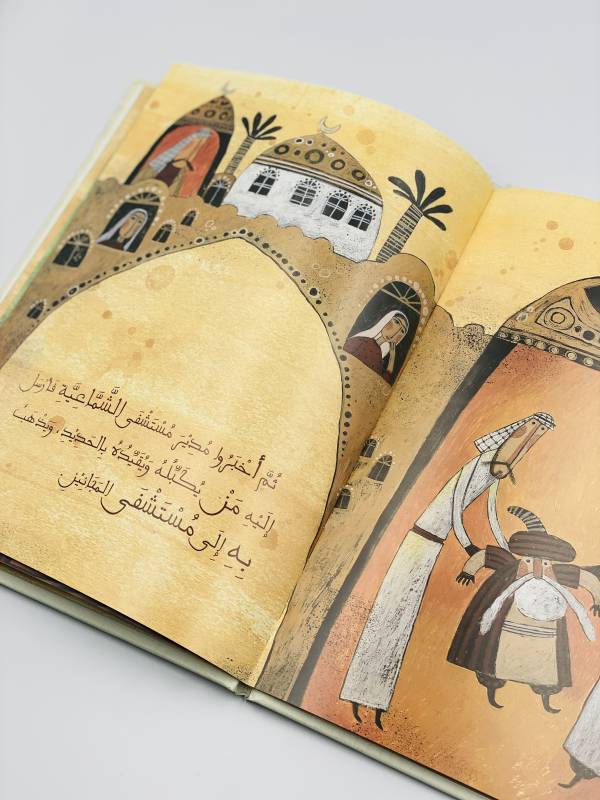 ثُمَّ أَخْبَرُوا مُدِيْرَ مُسْتَشْفَى الشَّمَّاعِيَّةِ فَأَرْسَلَ
إِلَيْهِ مَنْ يُكَبِّلُهُ وَيُقَيِّدُهُ بِالحَدِيْدِ، وَيَذْهَبُ
بِهِ إِلَى مُسْتَشْفَى المَجَانِيْنِ